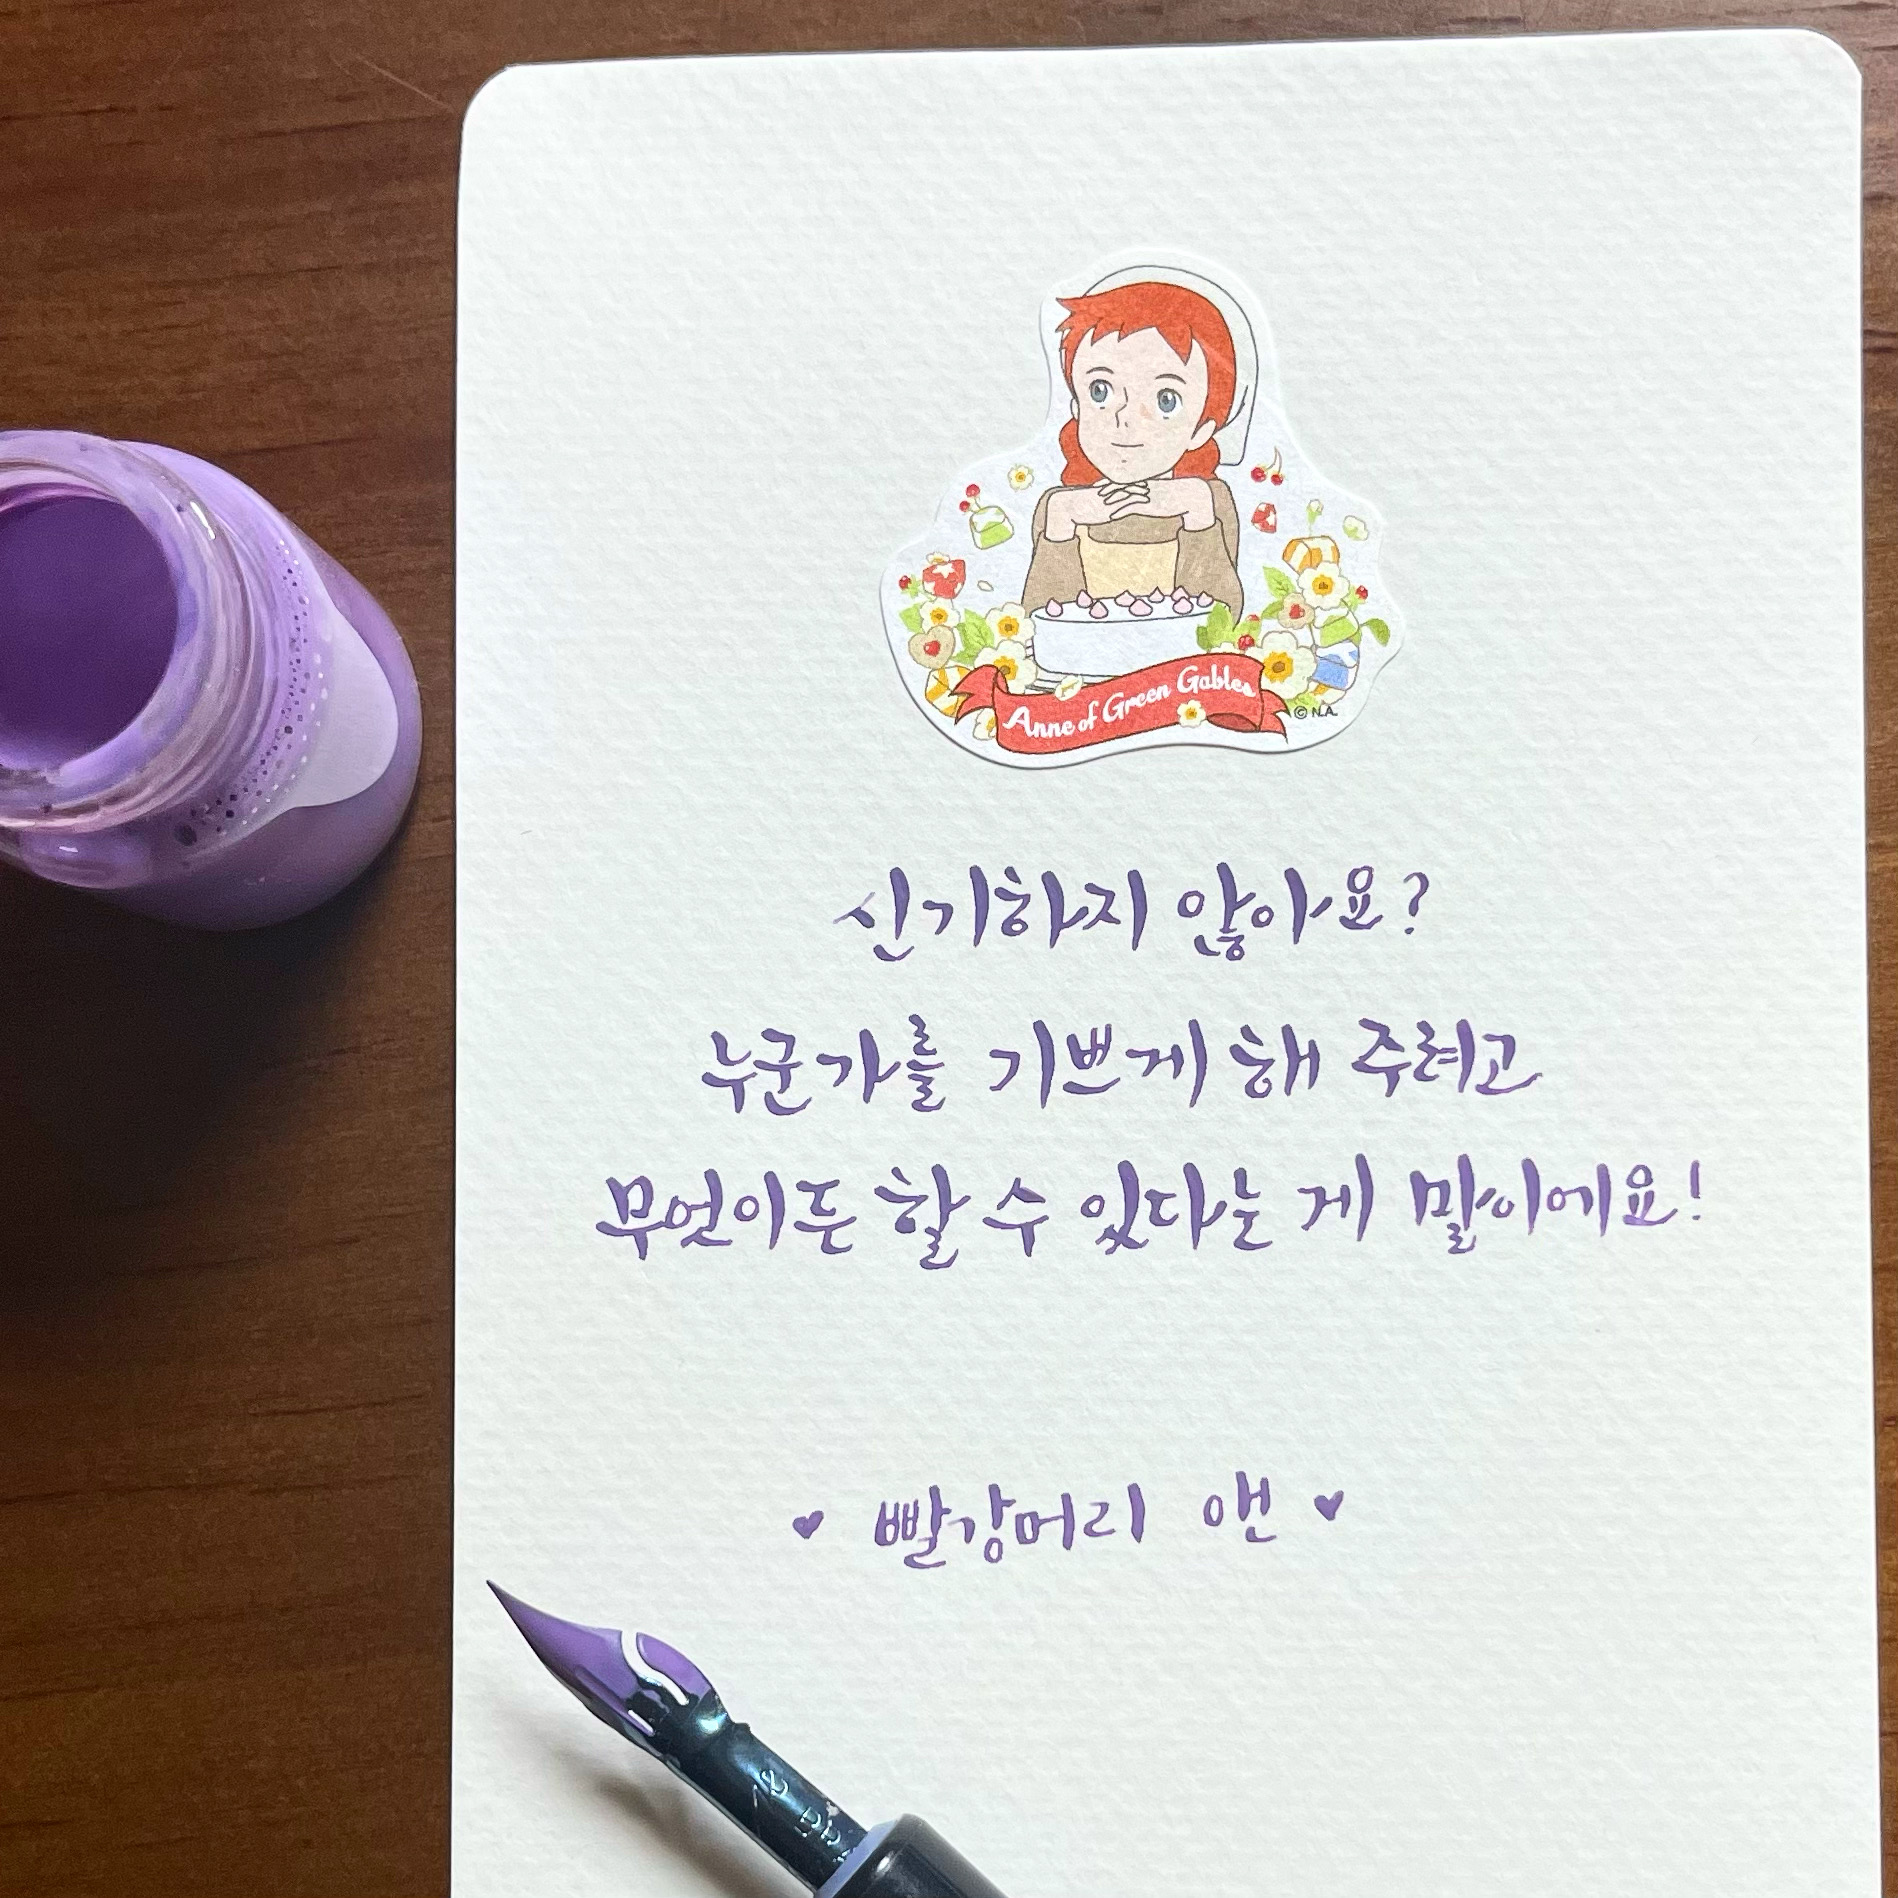 Anne of Green Gables
© N.A.
신기하지 않아요?
누군가를 기쁘게 해 주려고
무엇이든 할 수 있다는 게 말이에요!
♥ 빨강머리 앤 ♥